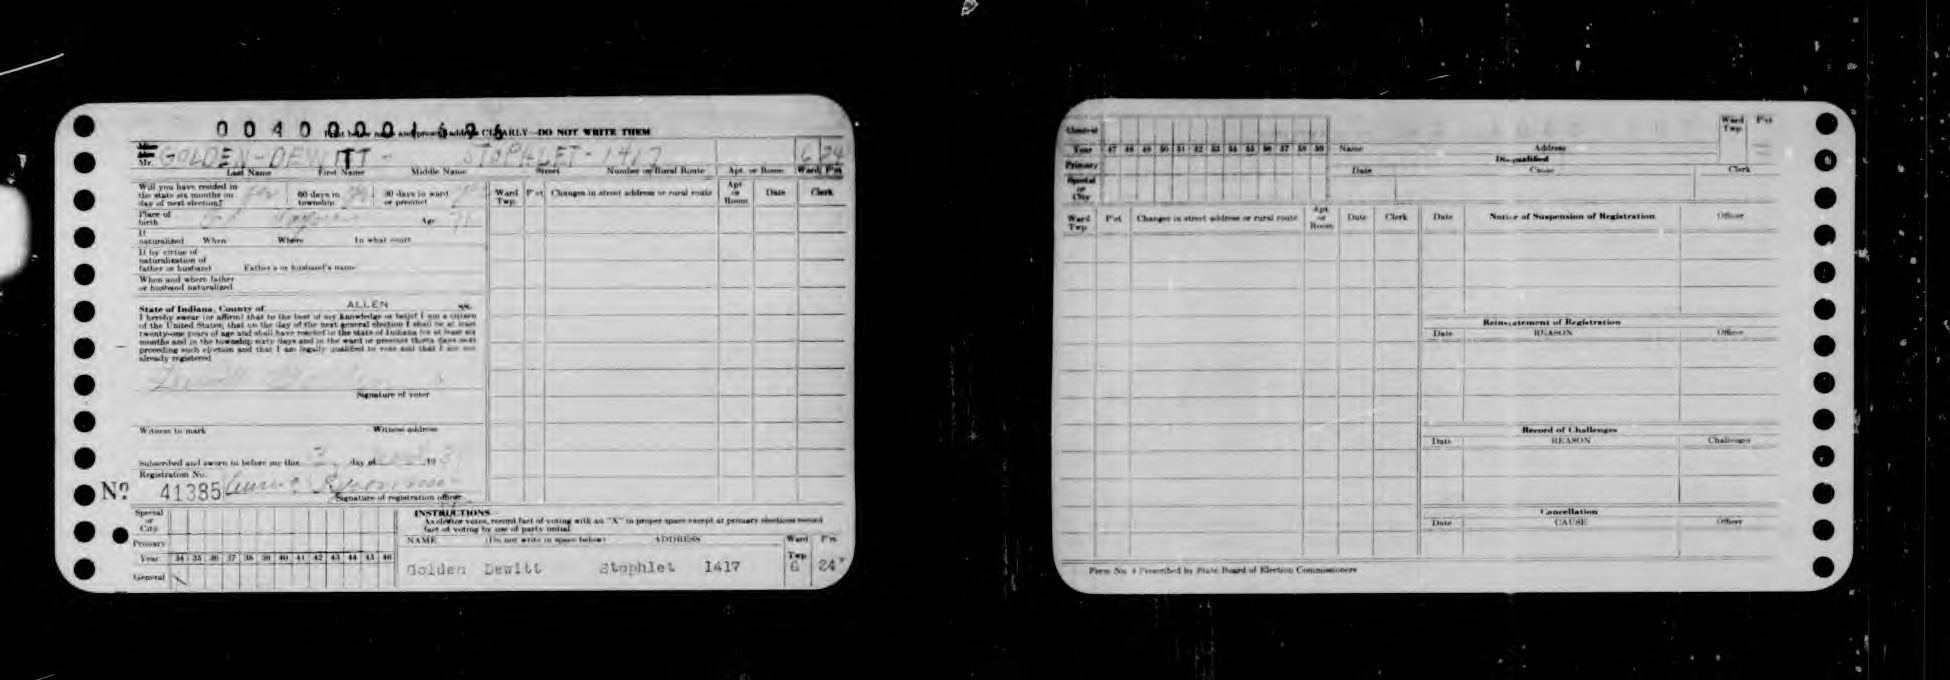 0 0 4 0 0 0 0 1 5 0 6
Print below name and present address CLEARLY—DO NOT WRITE THEM
Mr. GOLDEN - DEWITT - STOPHLET - 1417 6 24
Last Name First Name Middle Name Street Number or Rural Route Apt. or Room Ward P'ct
Will you have resided in the state six months on day of next election? 60 days in township 30 days in ward or precinct
Place of birth Age 71
If naturalized When Where In what court
If by virtue of naturalization of father or husband Father's or husband's name
When and where father or husband naturalized
State of Indiana, County of ALLEN ss.
I hereby swear (or affirm) that to the best of my knowledge or belief I am a citizen
of the United States; that on the day of the next general election I shall be at least
twenty-one years of age and shall have resided in the state of Indiana for at least six
months and in the township sixty days and in the ward or precinct thirty days next
preceding such election and that I am legally qualified to vote and that I am not
already registered
Signature of voter
Witness to mark Witness address
Subscribed and sworn to before me this day of 19
Registration No.
No. 41385
Signature of registration officer
Ward Twp. P'ct Changes in street address or rural route Apt. or Room Date Clerk
Special or City
Primary
Year 34 35 36 37 38 39 40 41 42 43 44 45 46
General
INSTRUCTIONS
As elector votes, record fact of voting with an "X" in proper space except at primary elections record
fact of voting by use of party initial
NAME (Do not write in space below) ADDRESS Ward Twp P'ct
Golden Dewitt Stophlet 1417 6 24
General
Year 47 48 49 50 51 52 53 54 55 56 57 58 59
Primary
Special or City
Name Address Ward Twp. P'ct
Disqualified
Date Cause Clerk
Ward Twp P'ct Changes in street address or rural route Apt. or Room Date Clerk
Date Notice of Suspension of Registration Officer
Reinstatement of Registration
Date REASON Officer
Record of Challenges
Date REASON Challenger
Cancellation
Date CAUSE Officer
Form No. 4 Prescribed by State Board of Election Commissioners